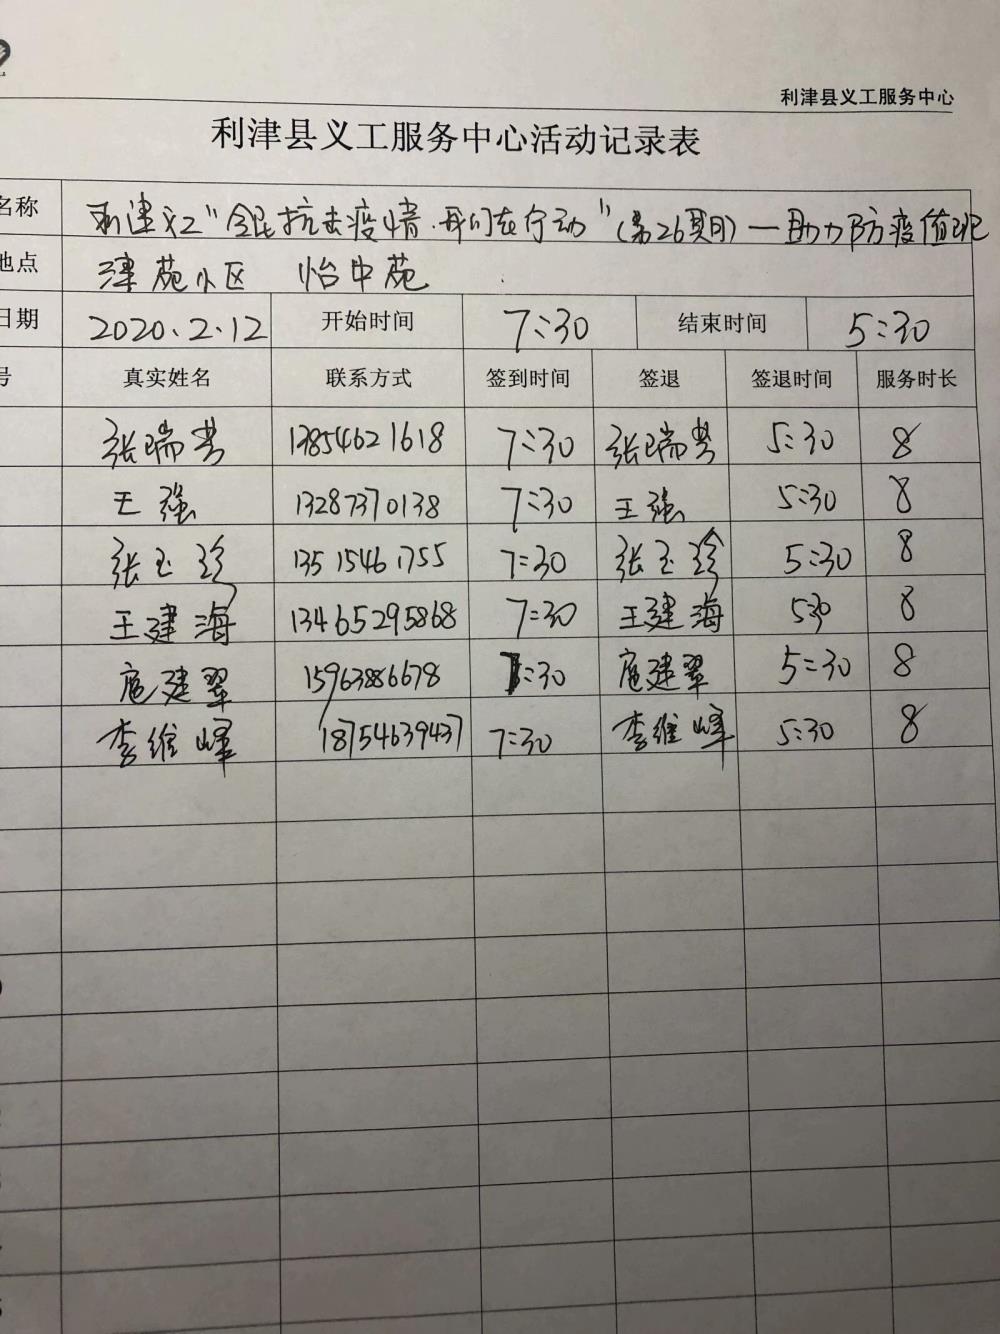 利津县义工服务中心
利津县义工服务中心活动记录表
名称 利津义工"全民抗击疫情.我们在行动"(第26期)一助力防疫值班
地点 津苑小区 怡中苑
日期 2020.2.12 开始时间 7:30 结束时间 5:30
号 真实姓名 联系方式 签到时间 签退 签退时间 服务时长
张瑞芸 13854621618 7:30 张瑞芸 5:30 8
王强 13287370138 7:30 王强 5:30 8
张玉珍 13515461755 7:30 张玉珍 5:30 8
王建海 13465295868 7:30 王建海 530 8
扈建翠 15963886678 7:30 扈建翠 5:30 8
李维峰 18754639437 7:30 李维峰 5:30 8